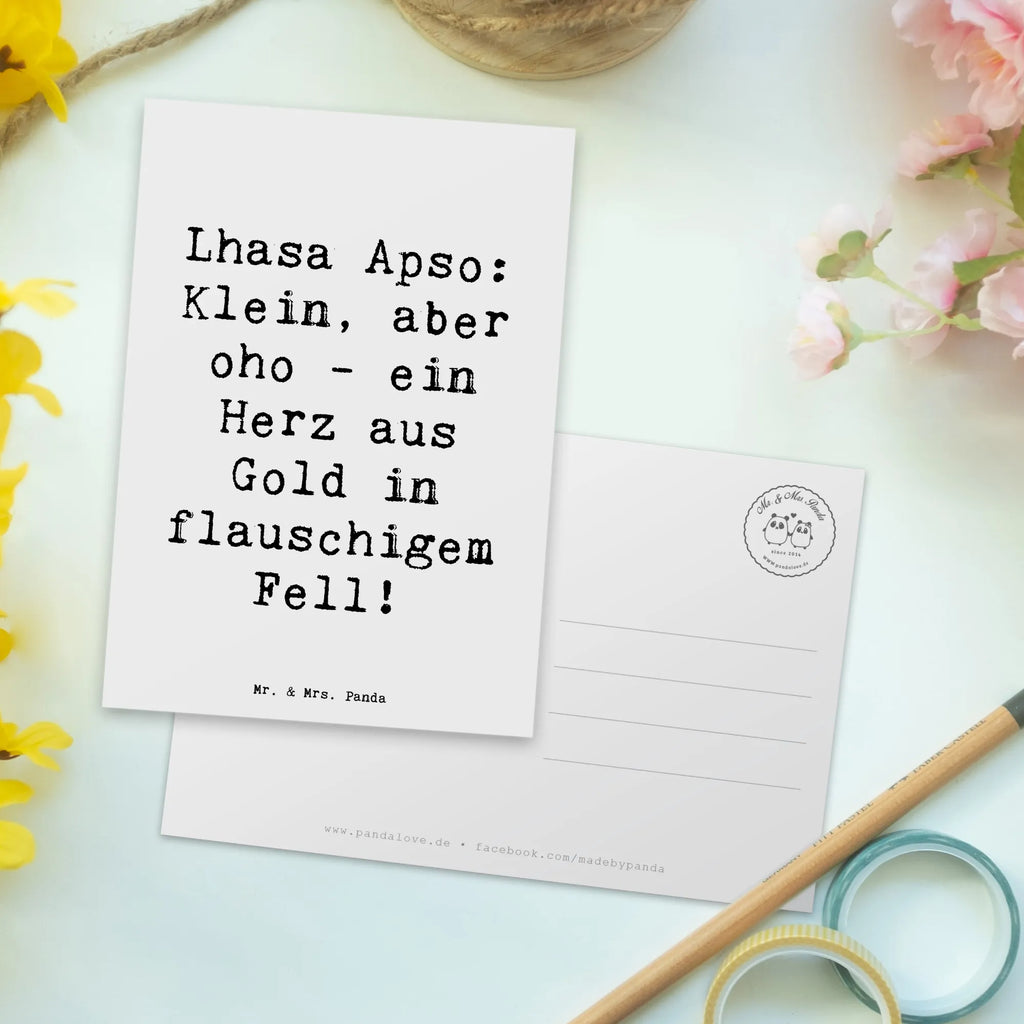 Lhasa Apso:
Klein, aber
oho - ein
Herz aus
Gold in
flauschigem
Fell!
Mr. & Mrs. Panda
Mr. & Mrs. Panda
since 2014
www.pandalove.de
www.pandalove.de • facebook.com/madebypanda
PITT PASTEL FABER-CASTELL